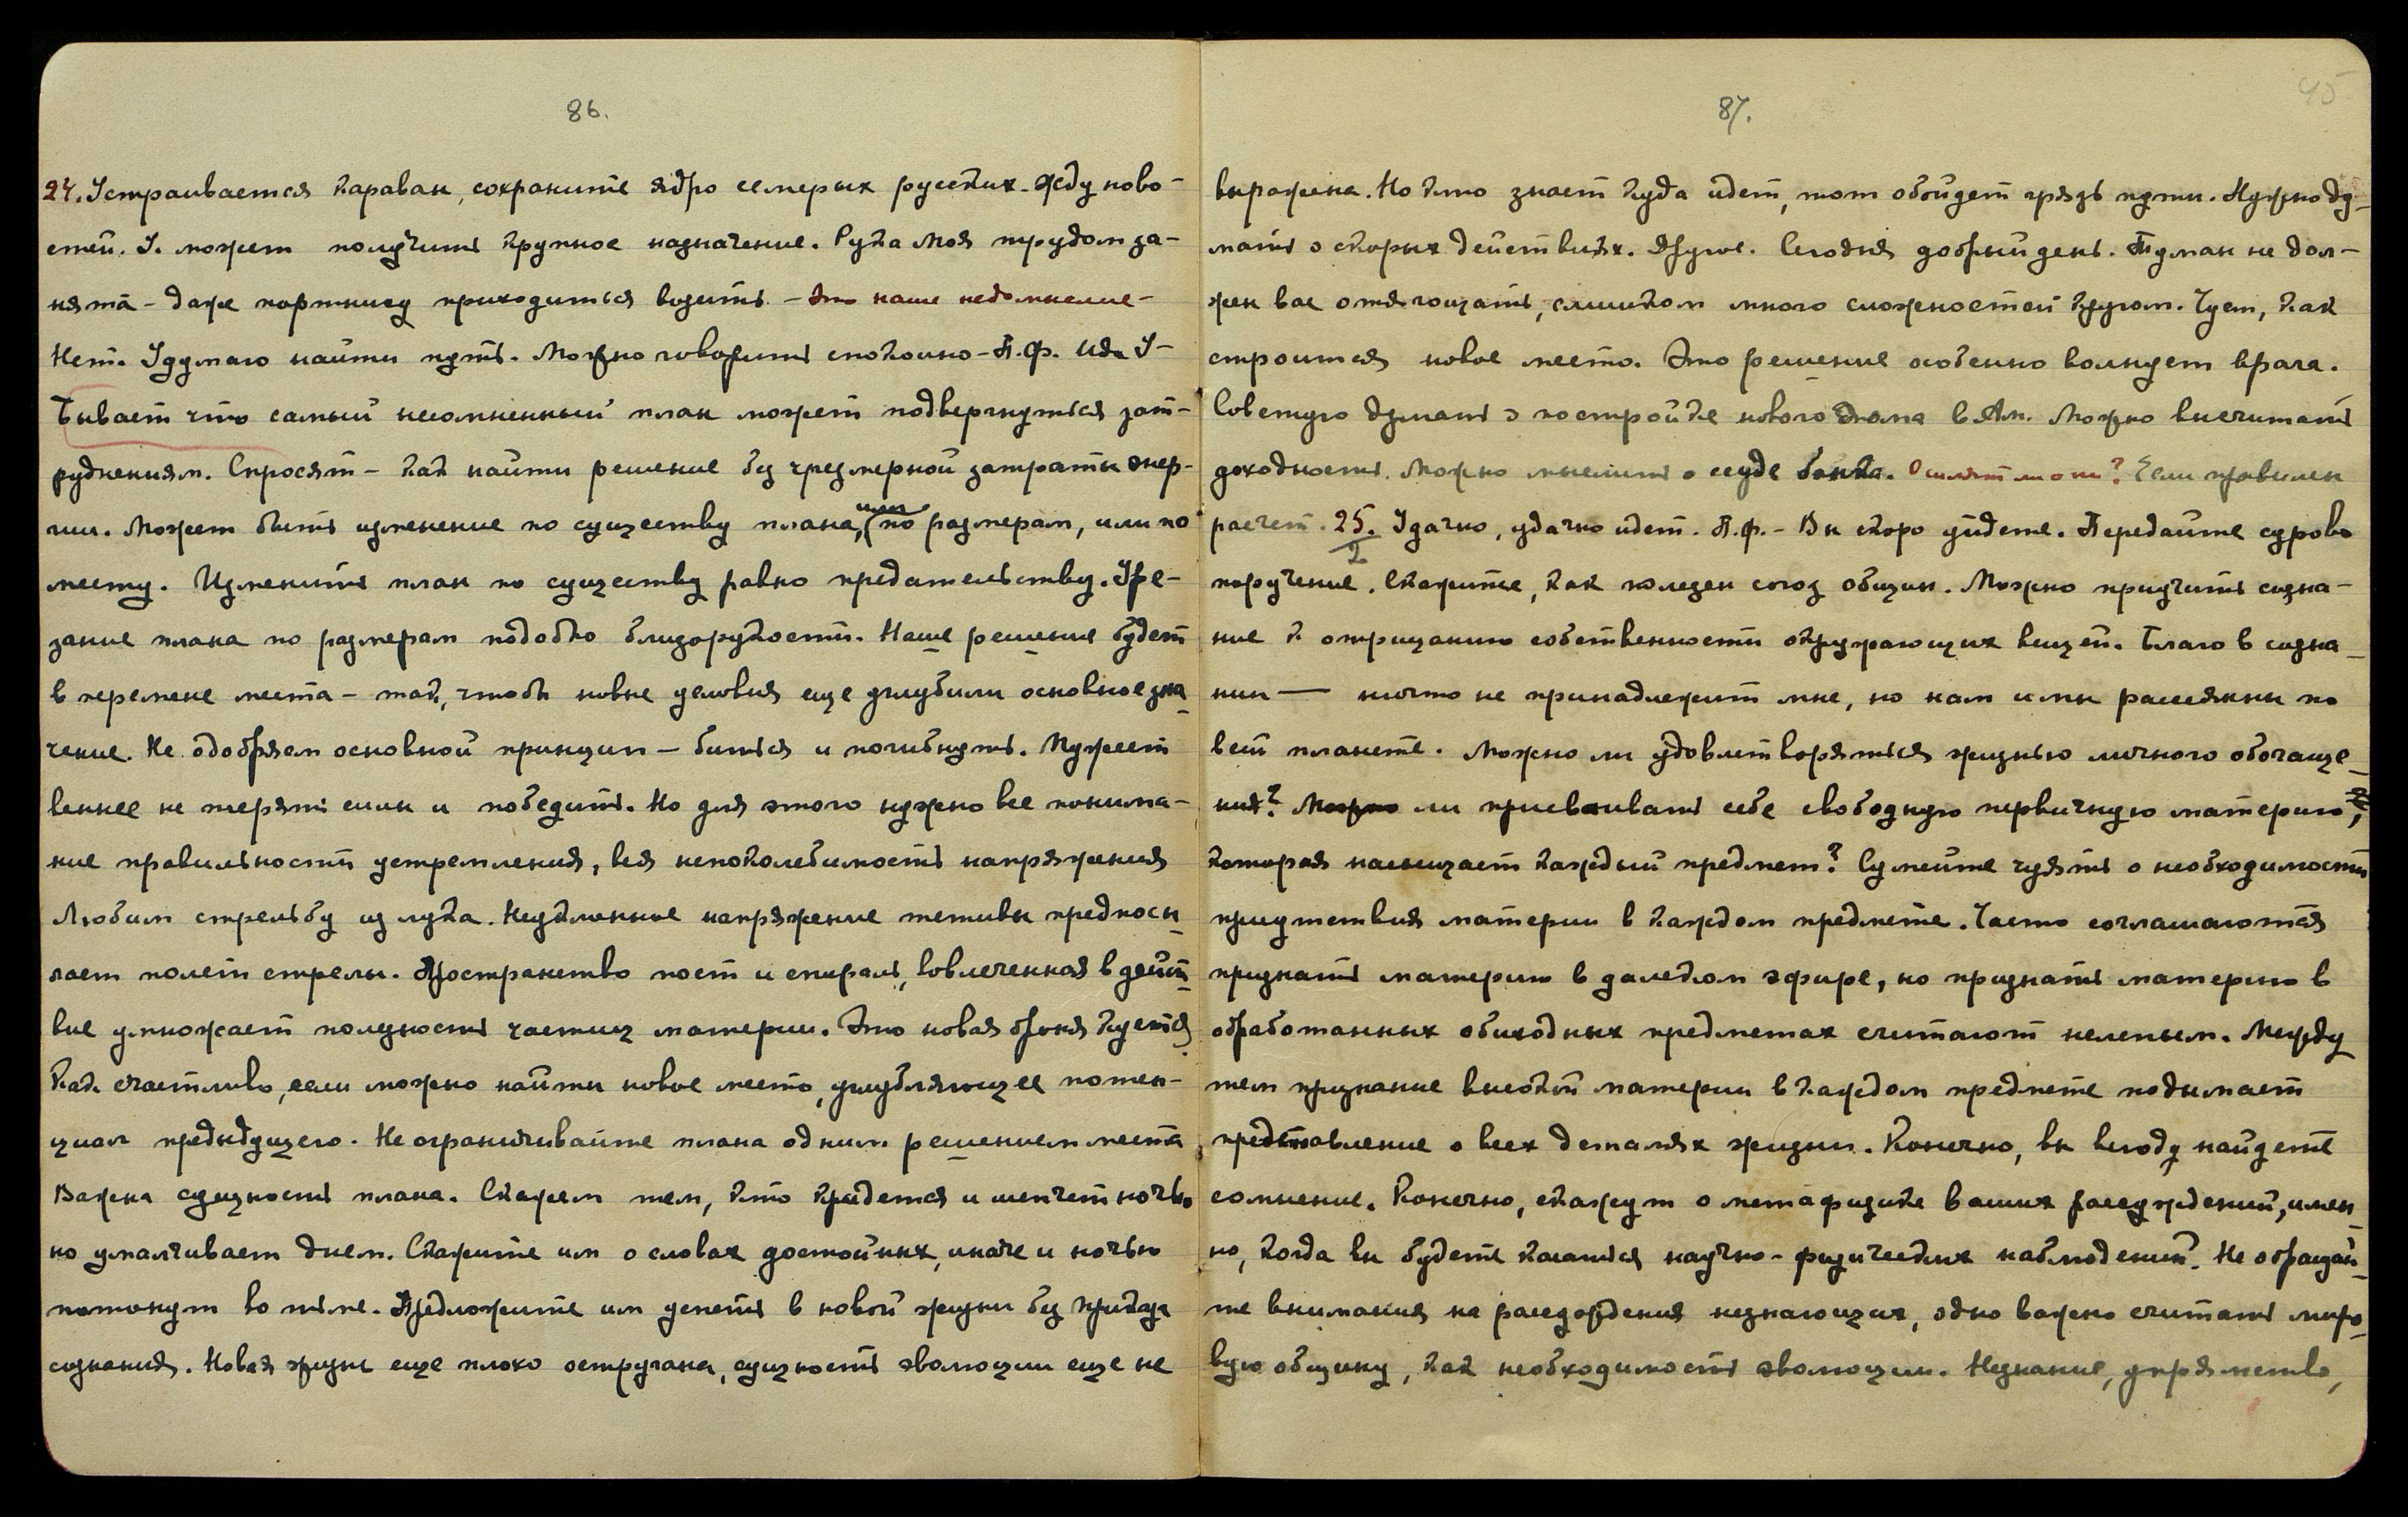 86.
24. Устраивается караван, сохраните ядро семерых русских. Жду ново-
стей. У. может получить крупное назначение. Рука Моя трудом за-
нята - даже портнису приходиться водить. - Это наше недомыслие -
Нет. Удумаю найти путь. Можно говорить спокойно - П.Ф. Ида У-
Бывает что самый несомненный план может подвергнуться зат-
руднениям. Спросят - как найти решение без чрезмерной затраты энер-
гии. Может быть изменение по существу плана, или по размерам, или по
месту. Изменить план по существу равно предательству. Уре-
зание плана по размерам подобно близорукости. Наше решение будет
в перемене места - так, чтобы новые условия еще углубили основное зна
чение. Не одобряем основной принцип - биться и погибнуть. Мужест
веннее не терять силы и победить. Но для этого нужно все понима-
ние правильности устремления, вся непоколебимость напряжения
Любим стрельбу из лука. Неуклонное напряжение тетивы предпосы
лает полет стрелы. Пространство поет и спираль, вовлеченная в дейст
вие умножает полезность частиц материи. Это новая броня куется.
Как счастливо, если можно найти новое место, углубляющее потен-
циал предыдущего. Не ограничивайте плана одним решением места
Важна сущность плана. Скажем тем, кто крадется и шепчет ночью
но умалчивает днем. Скажите им о словах достойных, иначе и ночью
потонут во тьме. Предложите им успеть в новой жизни без придадка
сознания. Новая жизнь еще плохо остругана, сущность эволюции еще не
87.
45
выражена. Но кто знает куда идет, тот обойдет грязь пути. Нужно ду-
мать о скорых действиях. Другое. Сегодня добрый день. Туман не дол-
жен вас отягощать, слишком много сложностей кругом. Чует, как
строится новое место. Это решение особенно волнует врага.
Советую думать о постройке нового дома в Ам. Можно высчитать
доходность. Можно мыслить о ссуде банка. Осилят ли они? Если правилен
расчет. 25. I Удачно, удачно идет. П.Ф. - Вы скоро уйдете. Передайте сурово
поручение. Скажите, как полезен союз общин. Можно приучить созна-
ние к отрицанию собственности окружающих вещей. Благо в созна
нии — ничто не принадлежит мне, но нам и мы рассеяны по
всей планете. Можно ли удовлетворяться жизнью личного обогаще
ния? Можно ли присваивать себе свободную первичную материю,
которая насыщает каждый предмет? Сумейте чуять о необходимости
присутствия материи в каждом предмете. Часто соглашаются
признать материю в далеком эфире, но признать материю в
обработанных обиходных предметах считают нелепым. Между
тем признание высокой материи в каждом предмете подымает
представление о всех деталях жизни. Конечно, вы всюду найдете
сомнение. Конечно, скажут о метафизике ваших рассуждений, имен
но, когда вы будете касаться научно-физических наблюдений. Не обращай
те внимания на рассуждения незнающих, одно важно считать миро
вую общину, как необходимость эволюции. Незнание, упрямство,